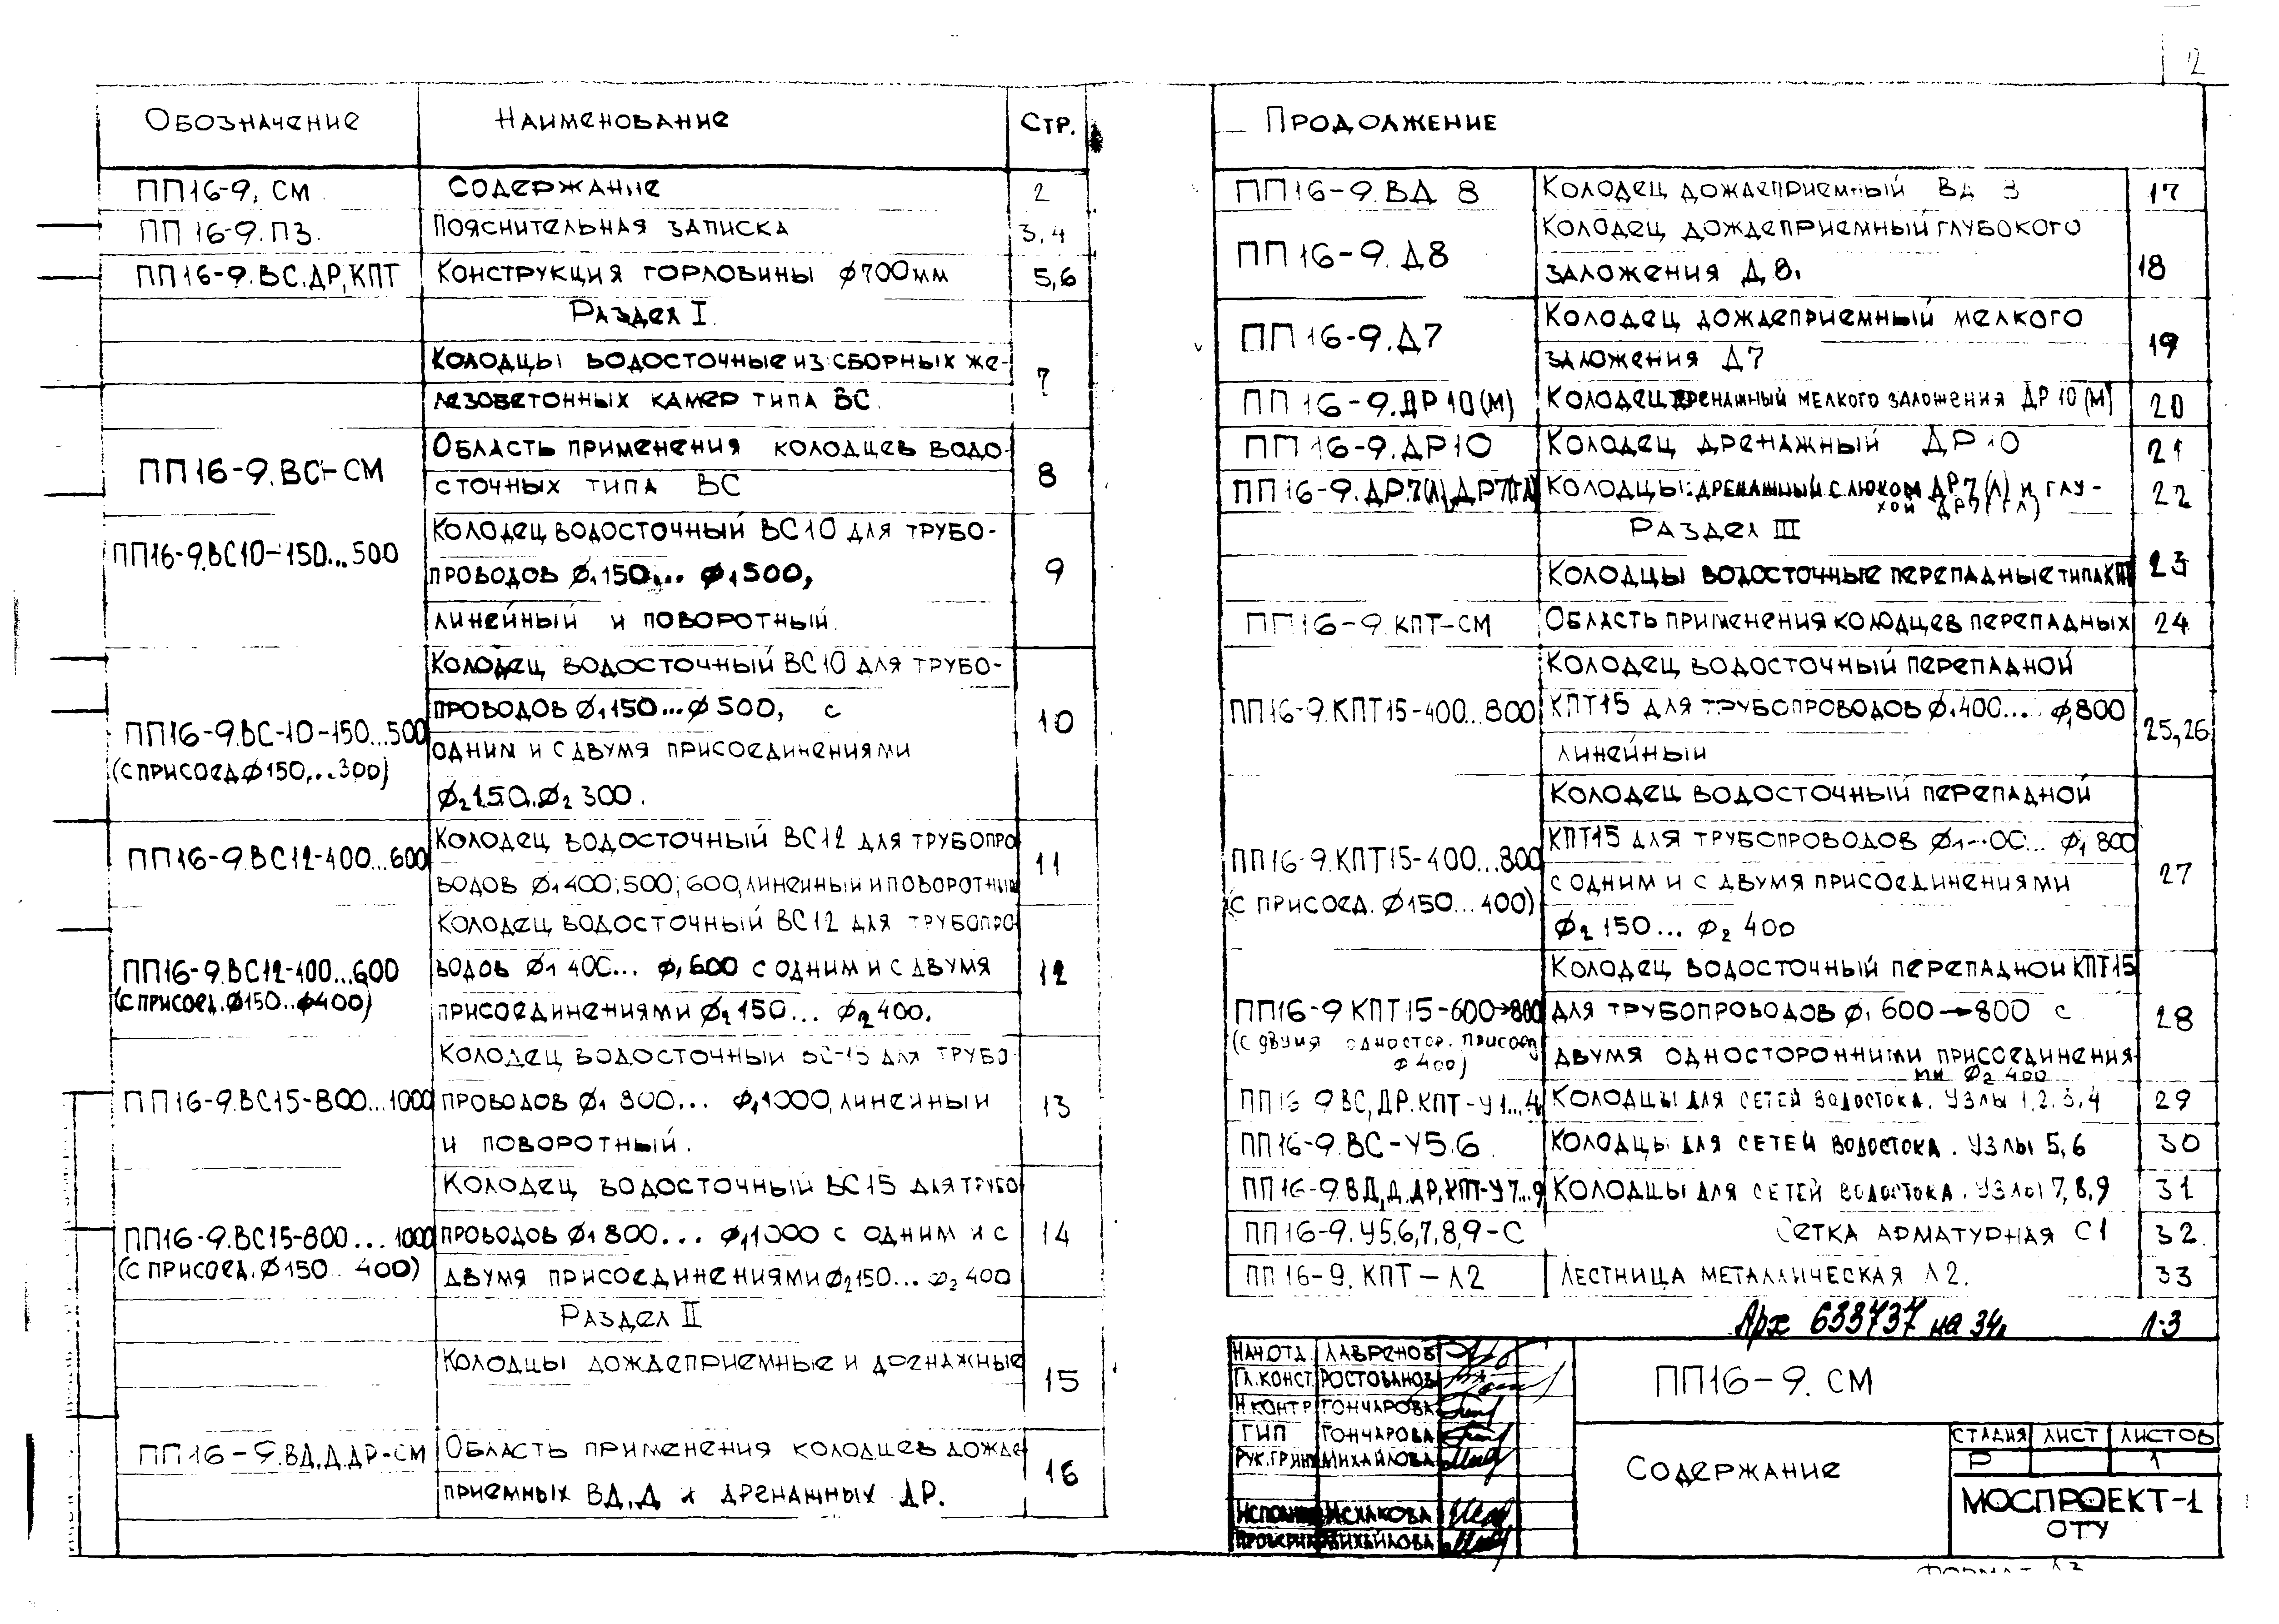 2
ОБОЗНАЧЕНИЕ НАИМЕНОВАНИЕ СТР.
ПП16-9. СМ СОДЕРЖАНИЕ 2
ПП 16-9.ПЗ. ПОЯСНИТЕЛЬНАЯ ЗАПИСКА 3,4
ПП16-9.ВС.ДР,КПТ КОНСТРУКЦИЯ ГОРЛОВИНЫ ϕ700мм 5,6
РАЗДЕЛ I.
КОЛОДЦЫ ВОДОСТОЧНЫЕ ИЗ СБОРНЫХ ЖЕ-
ЛЕЗОБЕТОННЫХ КАМЕР ТИПА ВС. 7
ПП16-9.ВС-СМ ОБЛАСТЬ ПРИМЕНЕНИЯ КОЛОДЦЕВ ВОДО-
СТОЧНЫХ ТИПА ВС 8
ПП16-9.ВС10-150...500 КОЛОДЕЦ ВОДОСТОЧНЫЙ ВС10 ДЛЯ ТРУБО-
ПРОВОДОВ ϕ₁150... ϕ₁500, 9
ЛИНЕЙНЫЙ И ПОВОРОТНЫЙ.
КОЛОДЕЦ ВОДОСТОЧНЫЙ ВС10 ДЛЯ ТРУБО-
ПРОВОДОВ ϕ₁150...ϕ 500, С 10
ПП16-9.ВС-10-150...500 ОДНИМ И С ДВУМЯ ПРИСОЕДИНЕНИЯМИ
(С ПРИСОЕД.ϕ150...300) ϕ₂150..ϕ₂ 300.
ПП16-9.ВС12-400...600 КОЛОДЕЦ ВОДОСТОЧНЫЙ ВС12 ДЛЯ ТРУБОПРО
ВОДОВ ϕ₁400;500;600,ЛИНЕЙНЫЙ И ПОВОРОТНЫЙ 11
КОЛОДЕЦ ВОДОСТОЧНЫЙ ВС12 ДЛЯ ТРУБОПРО
ПП16-9.ВС12-400...600 ВОДОВ ϕ₁ 400... ϕ₁600 С ОДНИМ И С ДВУМЯ 12
(С ПРИСОЕД.ϕ150..ϕ400) ПРИСОЕДИНЕНИЯМИ ϕ₂150... ϕ₂400.
КОЛОДЕЦ ВОДОСТОЧНЫЙ ВС-15 ДЛЯ ТРУБО-
ПП16-9.ВС15-800...1000 ПРОВОДОВ ϕ₁ 800... ϕ₁1000,ЛИНЕЙНЫЙ 13
И ПОВОРОТНЫЙ.
КОЛОДЕЦ ВОДОСТОЧНЫЙ ВС15 ДЛЯ ТРУБО
ПП16-9.ВС15-800...1000 ПРОВОДОВ ϕ₁800... ϕ₁1000 С ОДНИМ И С 14
(С ПРИСОЕД.ϕ150..400) ДВУМЯ ПРИСОЕДИНЕНИЯМИ ϕ₂150... ϕ₂400
РАЗДЕЛ II
КОЛОДЦЫ ДОЖДЕПРИЕМНЫЕ И ДРЕНАЖНЫЕ 15
ПП16-9.ВД,Д,ДР-СМ ОБЛАСТЬ ПРИМЕНЕНИЯ КОЛОДЦЕВ ДОЖДЕ
ПРИЕМНЫХ ВД,Д И ДРЕНАЖНЫХ ДР. 16
ПРОДОЛЖЕНИЕ
ПП16-9.ВД 8 КОЛОДЕЦ ДОЖДЕПРИЕМНЫЙ ВД 8 17
ПП16-9.Д8 КОЛОДЕЦ ДОЖДЕПРИЕМНЫЙ ГЛУБОКОГО
ЗАЛОЖЕНИЯ Д 8. 18
ПП16-9.Д7 КОЛОДЕЦ ДОЖДЕПРИЕМНЫЙ МЕЛКОГО
ЗАЛОЖЕНИЯ Д7 19
ПП 16-9.ДР10(М) КОЛОДЕЦ ДРЕНАЖНЫЙ МЕЛКОГО ЗАЛОЖЕНИЯ ДР10(М) 20
ПП 16-9.ДР10 КОЛОДЕЦ ДРЕНАЖНЫЙ ДР10 21
ПП16-9.ДР7(Л),ДР7(ГЛ) КОЛОДЦЫ: ДРЕНАЖНЫЙ С ЛЮКОМ ДР7(Л) И ГЛУ- 22
ХОЙ ДР7(ГЛ)
РАЗДЕЛ III
КОЛОДЦЫ ВОДОСТОЧНЫЕ ПЕРЕПАДНЫЕ ТИПА КПТ 23
ПП16-9.КПТ-СМ ОБЛАСТЬ ПРИМЕНЕНИЯ КОЛОДЦЕВ ПЕРЕПАДНЫХ 24
КОЛОДЕЦ ВОДОСТОЧНЫЙ ПЕРЕПАДНОЙ
ПП16-9.КПТ15-400...800 КПТ15 ДЛЯ ТРУБОПРОВОДОВ ϕ₁400... ϕ₁800 25,26
ЛИНЕЙНЫЙ
КОЛОДЕЦ ВОДОСТОЧНЫЙ ПЕРЕПАДНОЙ
ПП16-9.КПТ15-400...800 КПТ15 ДЛЯ ТРУБОПРОВОДОВ ϕ₁400... ϕ₁800 27
(С ПРИСОЕД.ϕ150...400) С ОДНИМ И С ДВУМЯ ПРИСОЕДИНЕНИЯМИ
ϕ₂150... ϕ₂400
КОЛОДЕЦ ВОДОСТОЧНЫЙ ПЕРЕПАДНОЙ КПТ15
ПП16-9 КПТ15-600→800 ДЛЯ ТРУБОПРОВОДОВ ϕ₁ 600→800 С 28
(С ДВУМЯ ОДНОСТОР. ПРИСОЕД ДВУМЯ ОДНОСТОРОННИМИ ПРИСОЕДИНЕНИЯ-
ϕ400) МИ ϕ₂400
ПП16-9 ВС,ДР.КПТ-У1...4 КОЛОДЦЫ ДЛЯ СЕТЕЙ ВОДОСТОКА. УЗЛЫ 1,2,3,4 29
ПП16-9.ВС-У5.6. КОЛОДЦЫ ДЛЯ СЕТЕЙ ВОДОСТОКА. УЗЛЫ 5,6 30
ПП16-9.ВД,Д,ДР,КПТ-У7...9 КОЛОДЦЫ ДЛЯ СЕТЕЙ ВОДОСТОКА. УЗЛЫ 7,8,9 31
ПП16-9.У5,6,7,8,9-С СЕТКА АРМАТУРНАЯ С1 32
ПП16-9.КПТ-Л2 ЛЕСТНИЦА МЕТАЛЛИЧЕСКАЯ Л2. 33
Арх 633737 на 34л 1-3
НАЧ.ОТД. ЛАВРЕНОВ
ГЛ.КОНСТ. РОСТОВАНОВ
Н КОНТР ГОНЧАРОВА
ГИП ГОНЧАРОВА
РУК.ГР МИХАЙЛОВА
ИСХАКОВА
МИХАЙЛОВА
ПП16-9. СМ
СОДЕРЖАНИЕ
СТАДИЯ ЛИСТ ЛИСТОВ
Р 1
МОСПРОЕКТ-1
ОТУ